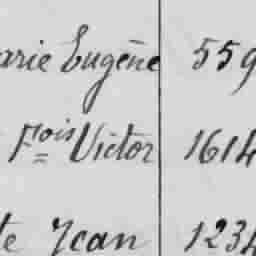 arie Eugène 559
Fois Victor 1614
te Jean 1234